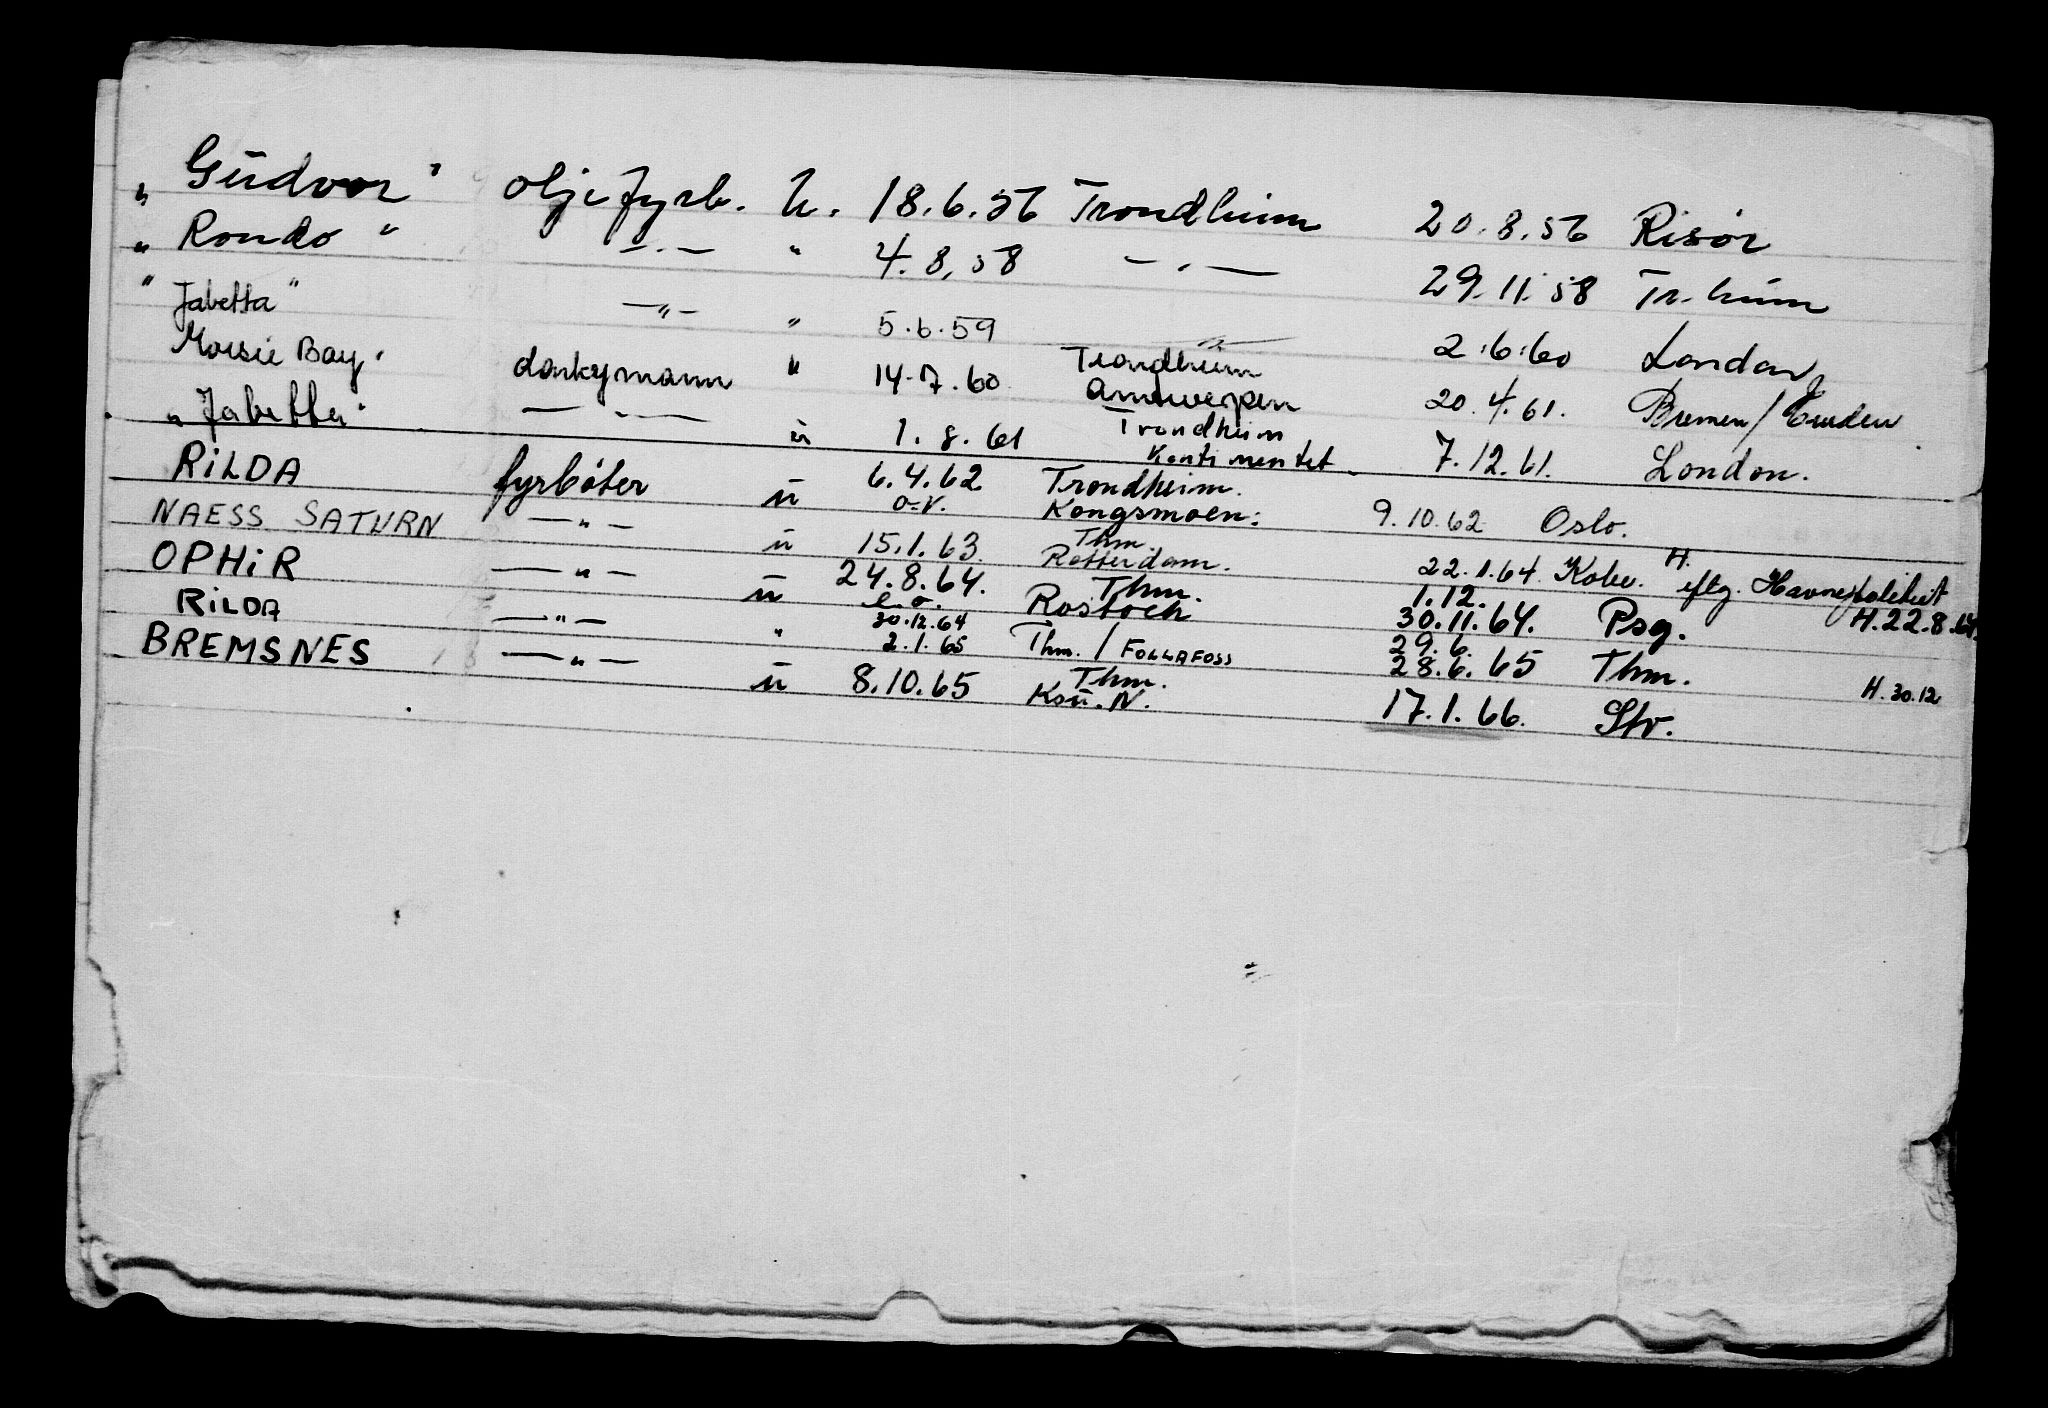 „ Gudvor " oljefyrb. u. 18.6.56 Trondheim 20.8.56 Risør
„ Rondo " — . — " 4.8.58 — . — 29.11.58 Tr.heim
" Jabetta " — " — " 5.6.59 — " — 2.6.60 London
Morsie Bay " donkymann " 14.7.60 Trondheim Antwerpen 20.4.61. Bremen / Emden
„ Jabetta " — . — u 1.8.61 Trondheim Kontinentet. 7.12.61. London.
RILDA fyrbøter u 6.4.62 o.v. Trondheim. Kongsmoen: 9.10.62 Oslo.
NAESS SATURN — " — u 15.1.63. Thm Rotterdam. 22.1.64. Kobe. H. eftg. Havnepolitiet
OPHIR — " — u 24.8.64. e.o. Thm. Rostock 1.12. 30.11.64. Psg. H.22.8.64.
RILDA — " — " 30.12.64 2.1.65 Thm. / FOLLAFOSS 29.6. 28.6.65 Thm.
BREMSNES — " — u 8.10.65 Thm. Ksu. N. 17.1.66. Stv. H. 30.12